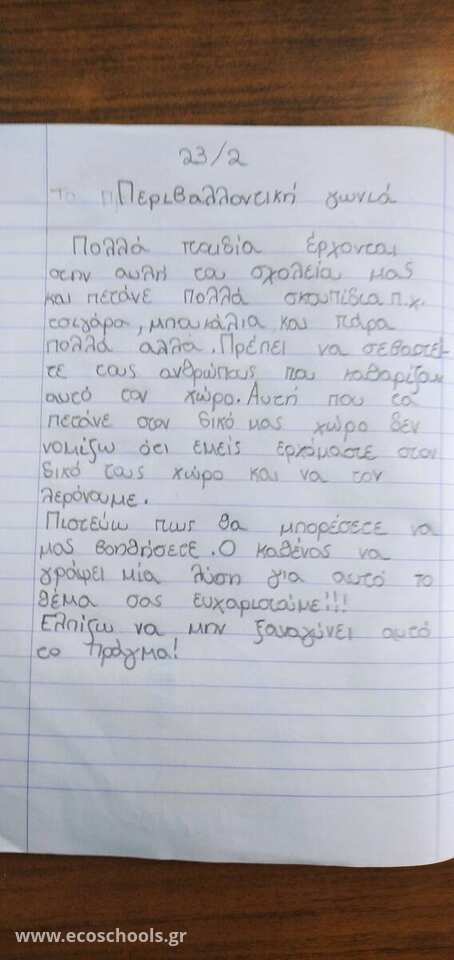 23/2
Το π Περιβαλλοντική γωνιά
Πολλά παιδία έρχονται
στην αυλή του σχολεία μας
και πετάνε πολλά σκουπίδια π.χ.
τσιγάρα, μπουκάλια και πάρα
πολλά αλλά. Πρέπει να σεβαστεί-
τε τους ανθρώπους που καθαρίζουν
αυτό τον χώρο. Αυτή που τα
πετάνε στον δικό μας χώρο δεν
νομίζω ότι εμείς ερχόμαστε στον
δικό τους χώρο και να τον
λερόνουμε.
Πιστεύω πως θα μπορέσετε να
μας βοηθήσετε. Ο καθένας να
γράφει μία λύση για αυτό το
θέμα σας ευχαριστούμε!!!
Ελπίζω να μην ξαναγύνει αυτό
το πράγμα!
www.ecoschools.gr